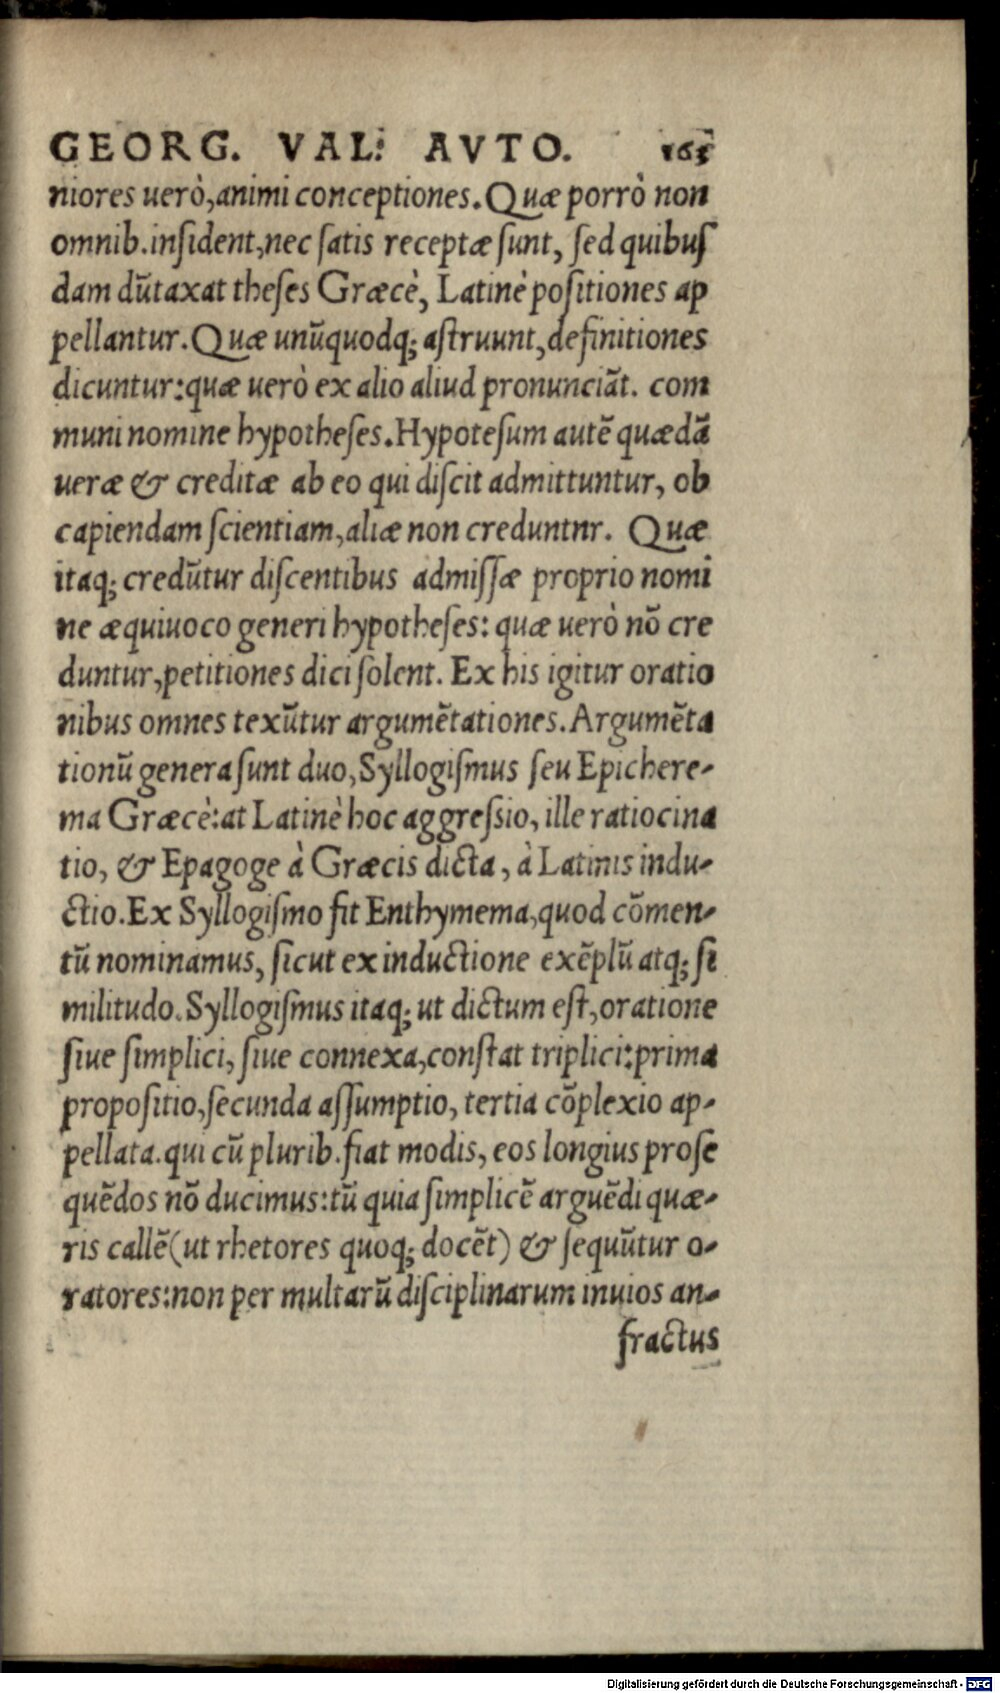 GEORG. VAL. AVTO. 165
niores uerò,animi conceptiones. Quæ porrò non
omnib.inſident,nec ſatis receptæ ſunt, ſed quibuſ
dam dūtaxat theſes Græcè, Latinè poſitiones ap
pellantur. Quæ unūquodq; aſtruunt,definitiones
dicuntur:quæ uerò ex alio aliud pronunciāt. com
muni nomine hypotheſes. Hypoteſum autē quædā
ueræ & creditæ ab eo qui diſcit admittuntur, ob
capiendam ſcientiam,aliæ non creduntnr. Quæ
itaq; credūtur diſcentibus admiſſæ proprio nomi
ne æquiuoco generi hypotheſes: quæ uerò nō cre
duntur,petitiones dici ſolent. Ex his igitur oratio
nibus omnes texūtur argumētationes. Argumēta
tionū genera ſunt duo, Syllogiſmus ſeu Epichere-
ma Græcè:at Latinè hoc aggreſsio, ille ratiocina
tio, & Epagoge à Græcis dicta, à Latinis indu-
ctio. Ex Syllogiſmo fit Enthymema,quod cōmen-
tū nominamus, ſicut ex inductione exēplū atq; ſi
militudo. Syllogiſmus itaq; ut dictum eſt,oratione
ſiue ſimplici, ſiue connexa,conſtat triplici:prima
propoſitio,ſecunda aſſumptio, tertia cōplexio ap-
pellata.qui cū plurib.fiat modis, eos longius proſe
quēdos nō ducimus:tū quia ſimplicē arguēdi quæ-
ris callē(ut rhetores quoq; docēt) & ſequūtur o-
ratores:non per multarū diſciplinarum inuios an-
fractus
Digitalisierung gefördert durch die Deutsche Forschungsgemeinschaft - DFG